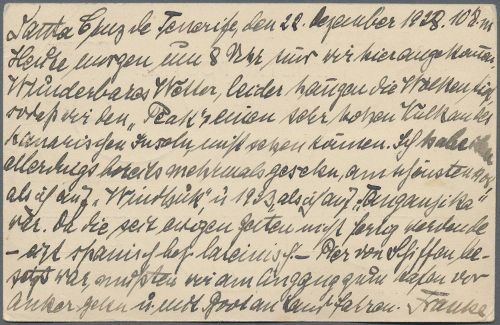 Santa Cruz de Tenerife, den 22. Dezember 1928. 10 Uhr
Heute morgen um 8 Uhr, sind wir hier angekommen.
Wunderbares Wetter, leider hängen die Wolken tief,
sodaß wir den "Peak", einen sehr hohen Vulkan der
kanarischen Inseln, nicht sehen können. Ich habe ihn
allerdings bereits mehrmals gesehen, am schönsten
als ich auf "Windhuk" u 1923, als ich auf "Tanganjika"
war. Da die seit ewigen Zeiten nicht fertig werdende
- echt spanisch bez. lateinisch - Pier von Schiffen be-
setzt war, mußten wir am Eingang zum Hafen vor
Anker gehen u. mit Boot an Land fahren. Franke